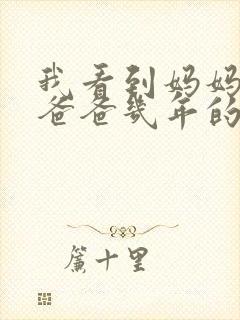 我看到妈妈
爸爸几年的
簾十里